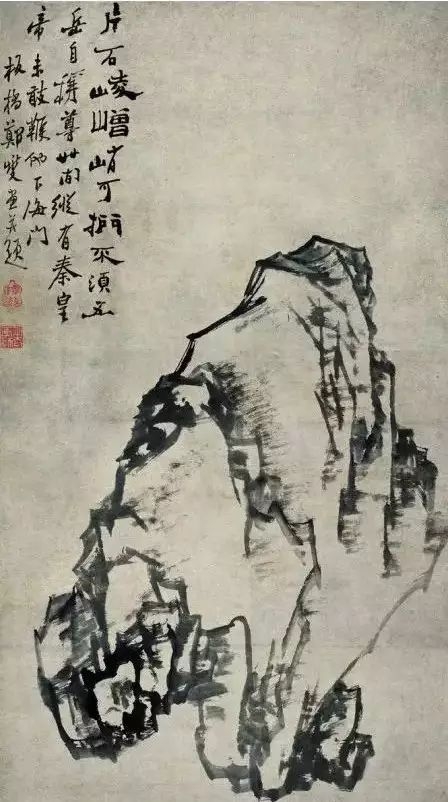 片石崚嶒峭可捫不須五
岳自稱尊此間縱有秦皇
帝未敢鞭他下海門
板橋鄭燮畫并題